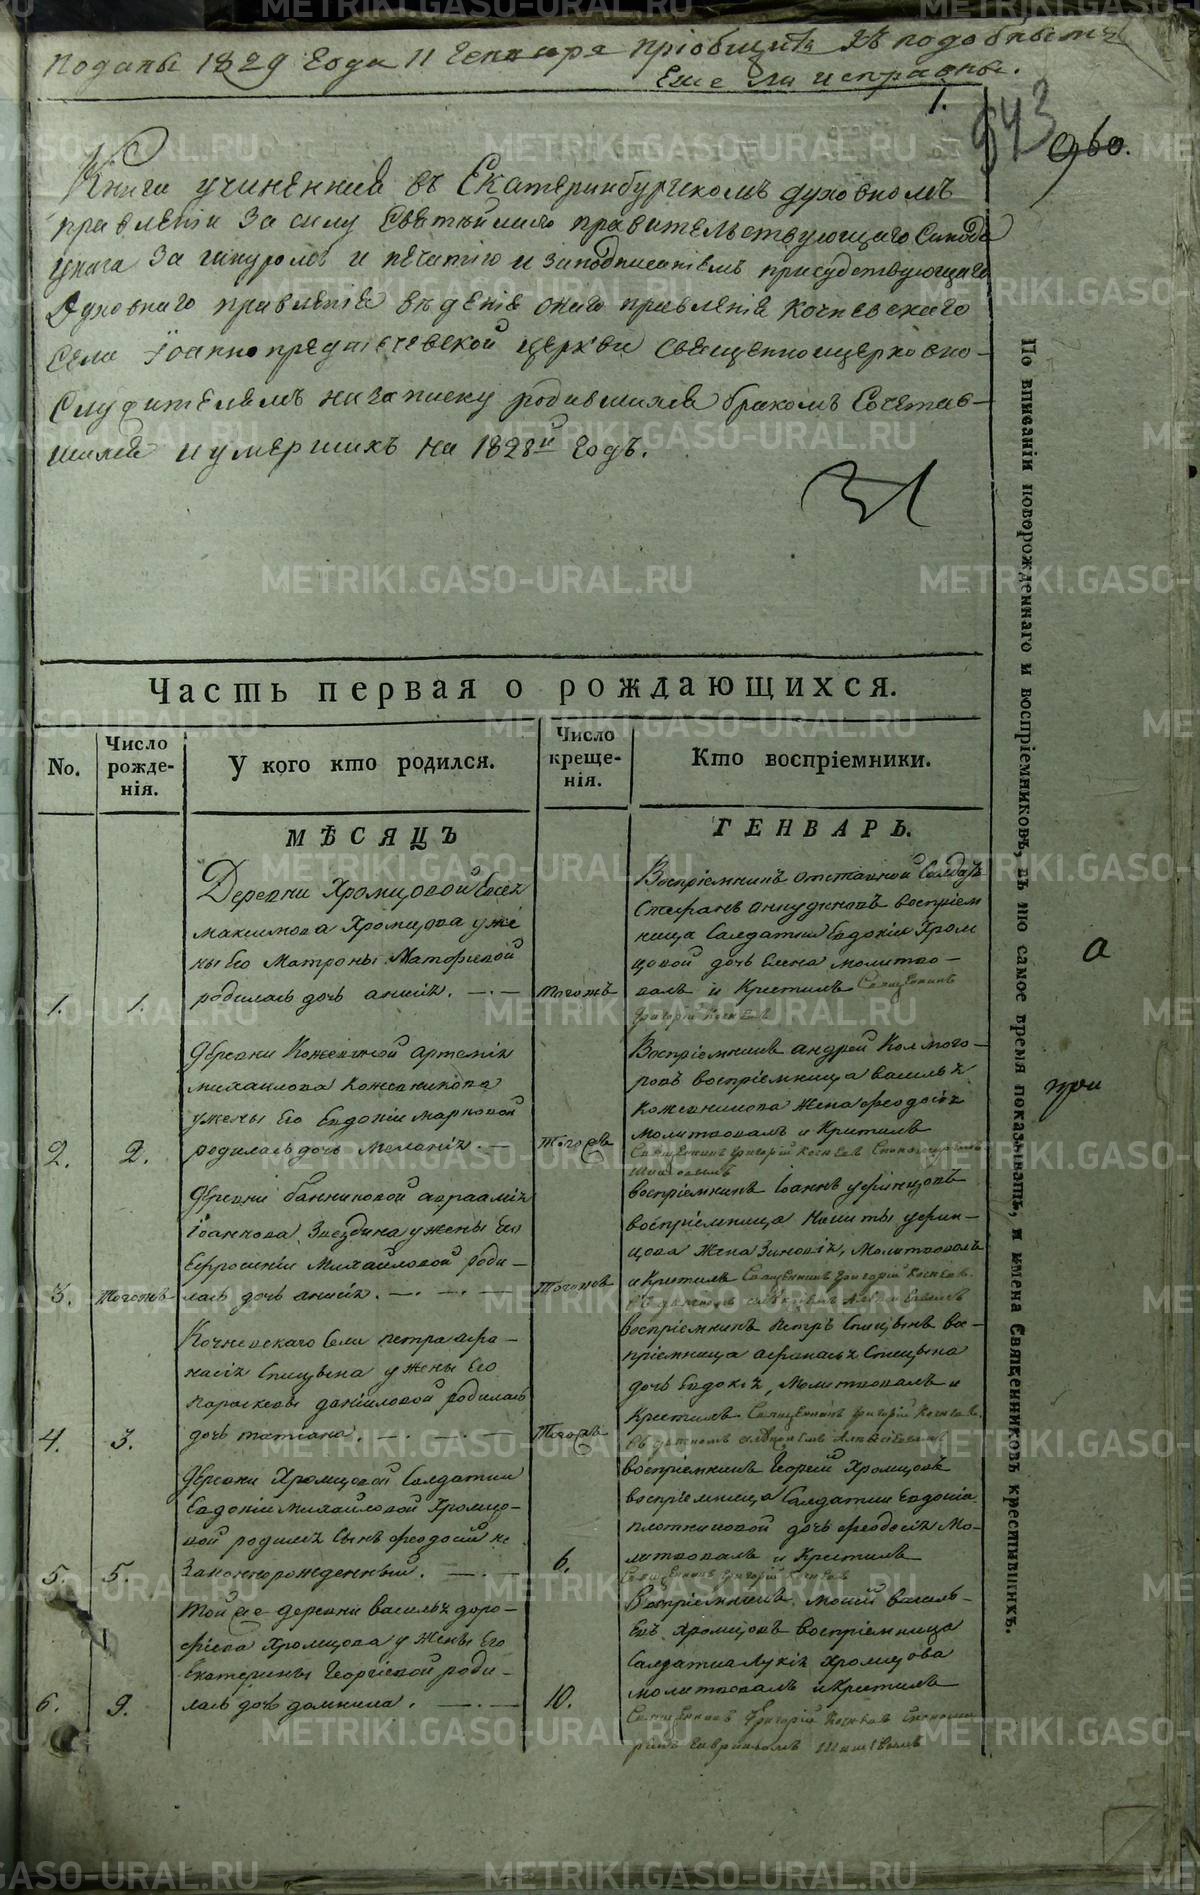 Поданы 1829 Года 11 Генваря пріобщить къ подобнымъ
Еще ли исправны.
1.
943
960.
Книга учиненная въ Екатеринбургскомъ духовномъ
правленіи За силу Святѣйшаго правительствующаго Синода
Указа За шнуромъ и печатью и заподписаніемъ присудствующаго
Духовнаго правленія вѣденія онаго правленія Кочневскаго
Села Іоаннопредтечевской церкви Священноцерковно-
Служителямъ на записку родившихся бракомъ Сочетав-
шихся и умершихъ на 1828й Годъ.
Часть первая о рождающихся.
No.
Число рожде-нія.
У кого кто родился.
Число креще-нія.
Кто воспріемники.
МѢСЯЦЪ
ГЕНВАРЬ.
Деревни Хромцовой Евсея
максимова Хромцова у же
ны Его Матроны Матфиевой
1. 1. родилась дочь анисія. тогожъ
Воспріемникъ отставной Салдатъ
Стефанъ анкудиновъ воспріем
ница Салдатки Евдокіи Хром
цовой дочь Елена молитво-
валъ и Крестилъ Священникъ
Григорій Кочневъ
деревни Кожевиной артемія
михаилова Кожевникова
у жены Его Евдокіи марковой
2. 2. родилась дочь Меланія. тогожъ
Воспріемникъ андрей Колмого-
ровъ воспріемница василья
Кожевникова жена феодосія
молитвовалъ и Крестилъ
Священникъ Григорій Кочневъ
деревни банниковой авраамія
Іоаннова Звездина у жены Его
Ефросиніи Михайловой роди-
3. тогожъ лась дочь анисія. тогожъ
воспріемникъ Іоаннъ уфинцовъ
воспріемница Никиты уфин-
цова жена Зиновія, молитвовалъ
и Крестилъ Священникъ Григорій Кочневъ.
Кочневскаго Села петра афа-
насія Спицына у жены Его
параскевы даниловой родилась
4. 3. дочь татіана. тогожъ
воспріемникъ петръ Спицынъ вос-
пріемница афанасья Спицына
дочь Евдокія, молитвовалъ и
Крестилъ Священникъ Григорій Кочневъ.
деревни Хромцовой Салдатки
Евдокіи михайловой Хромцо-
вой родился Сынъ феодосій не
5. 5. Законнорожденный. 6.
воспріемникъ Георгій Хромцовъ
воспріемница Салдатки Евдокіи
плотниковой дочь феодосія Мо-
литвовалъ и Крестилъ
Священникъ Григорій Кочневъ
той же деревни василья доро-
фіева Хромцова у жены Его
Екатерины Георгіевой роди-
6. 9. лась дочь домника. 10.
Воспріемникъ моисей василь-
евъ Хромцовъ воспріемница
Салдатка Лукія Хромцова
молитвовалъ и Крестилъ
Священникъ Григорій Кочневъ
По вписаніи новорожденнаго и воспріемниковъ, въ то самое время показывать, и имена Священниковъ крестившихъ.
а
при
METRIKI.GASO-URAL.RU